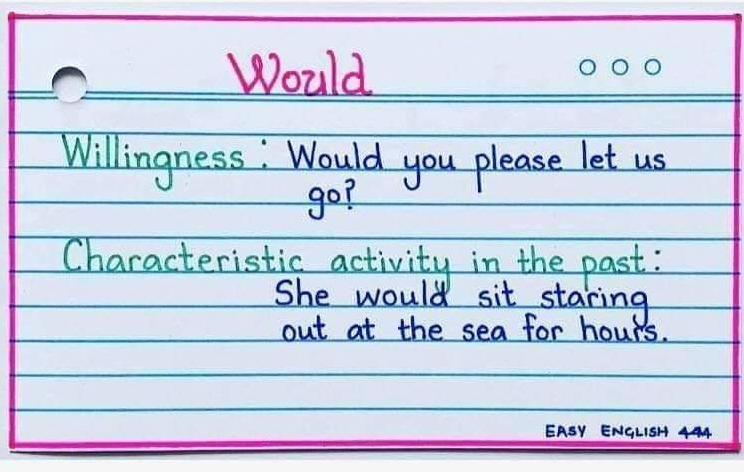 Would
Willingness : Would you please let us
go?
Characteristic activity in the past :
She would sit staring
out at the sea for hours.
EASY ENGLISH 444